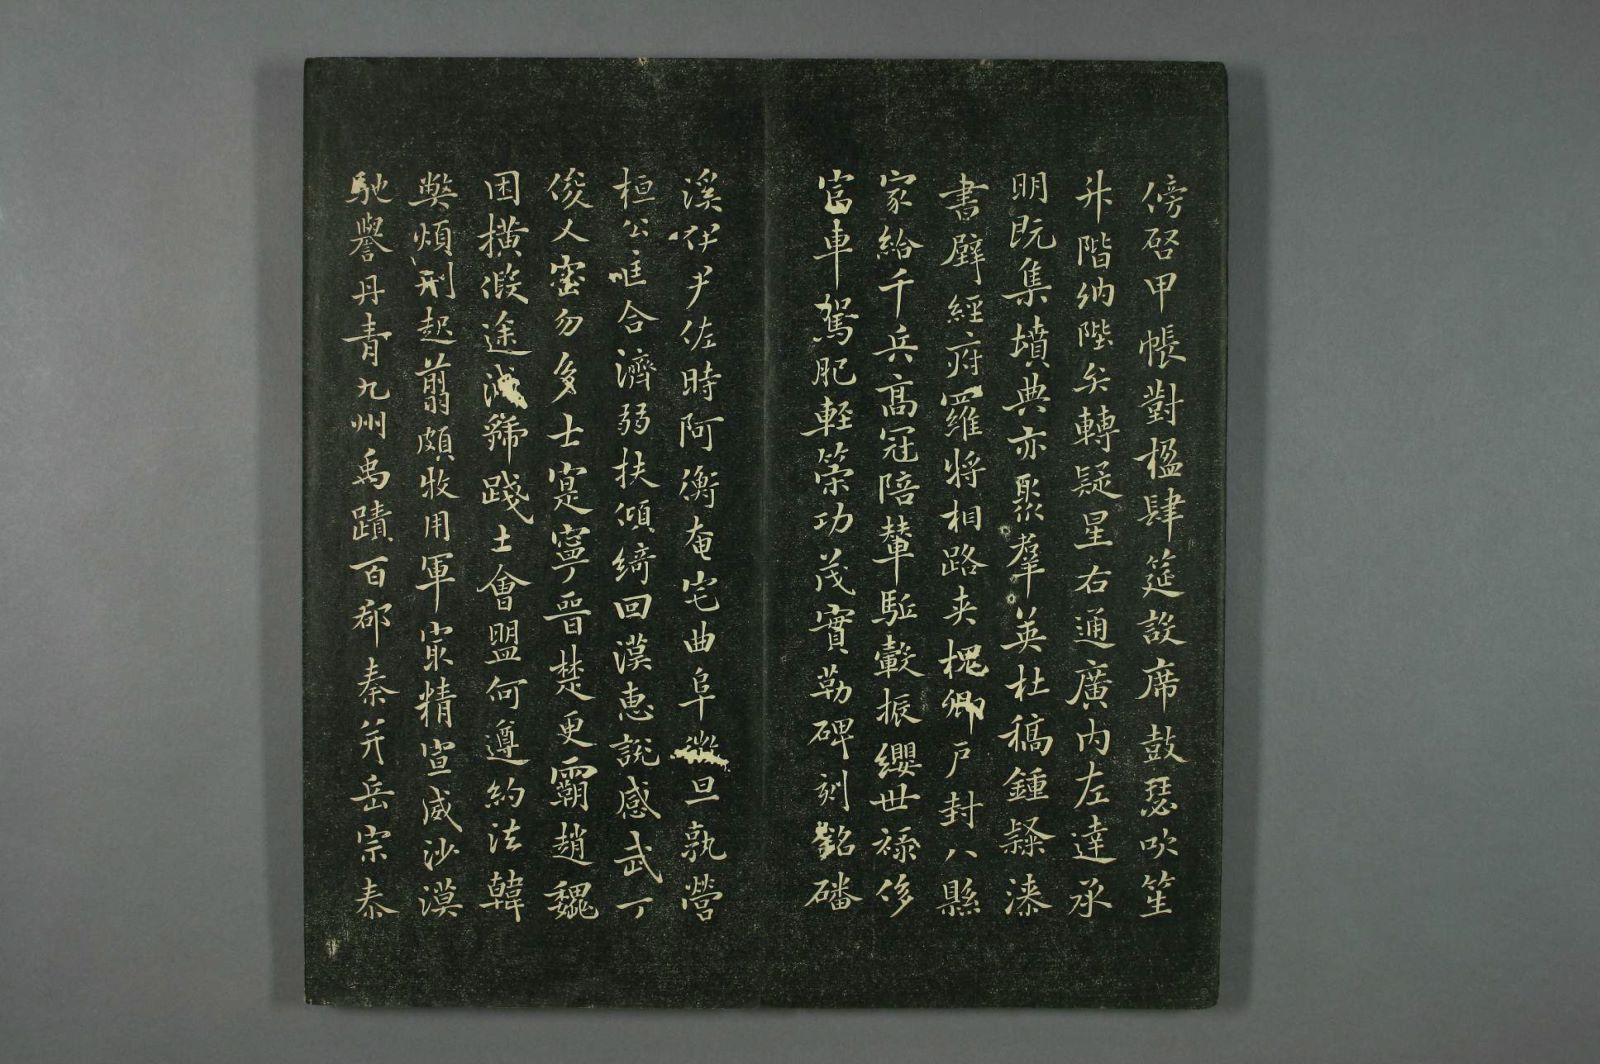 傍啓甲帳對楹肆筵設席鼓瑟吹笙
升階納陛弁轉疑星右通廣内左達承
明既集墳典亦聚羣英杜稿鍾隸漆
書壁經府羅將相路夾槐卿戶封八縣
家給千兵高冠陪輦駈轂振纓世祿侈
富車駕肥輕策功茂實勒碑刻銘磻
溪伊尹佐時阿衡奄宅曲阜微旦孰營
桓公匡合濟弱扶傾綺回漢惠說感武丁
俊乂密勿多士寔寧晉楚更霸趙魏
困橫假途滅虢踐土會盟何遵約法韓
弊煩刑起翦頗牧用軍最精宣威沙漠
馳譽丹青九州禹蹟百郡秦并岳宗泰